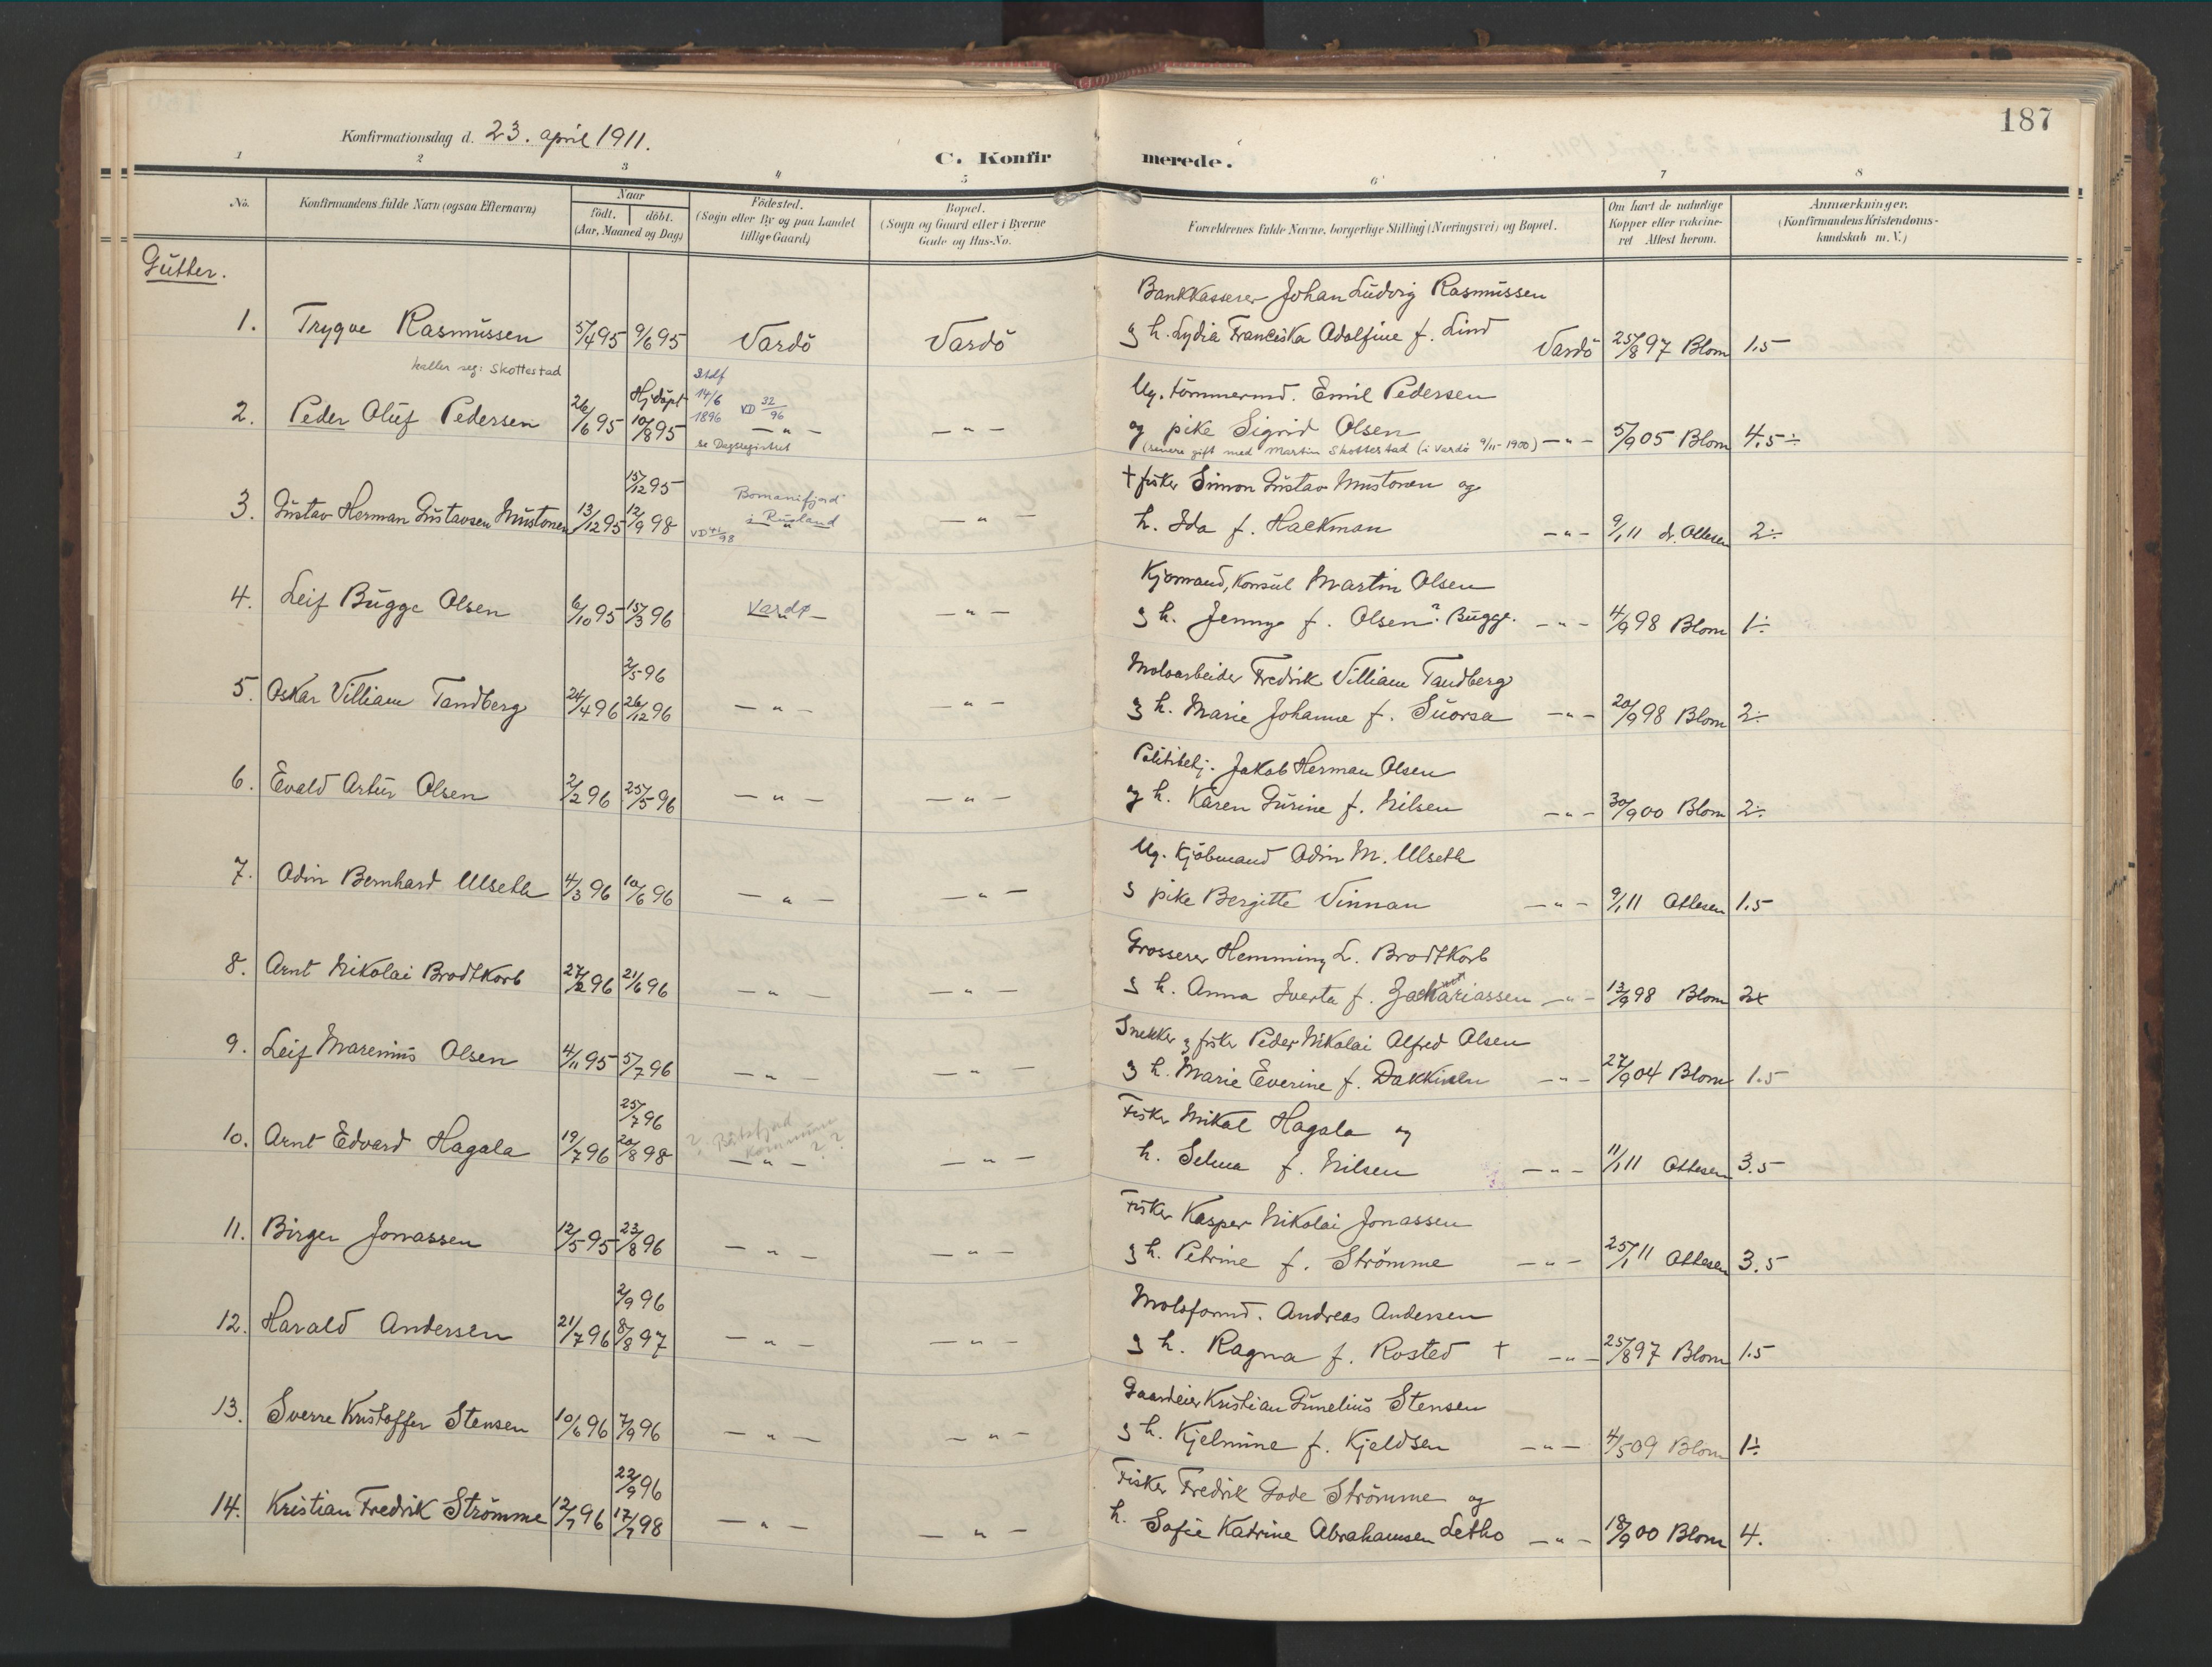 187
Konfirmationsdag d. 23. april 1911.
C. Konfirmerede.
1 2 3 4 5 6 7 8
No. Konfirmandens fulde Navn (ogsaa Efternavn) Naar födt. döbt. (Aar, Maaned og Dag) Födested. (Sogn eller By og paa Landet tillige Gaard) Bopæl. (Sogn og Gaard eller i Byerne Gade og Hus-No. Forældrenes fulde Navne, borgerlige Stilling (Næringsvei) og Bopæl. Om havt de naturlige Kopper eller vakcineret Attest herom. Anmærkninger. (Konfirmandens Kristendomskundskab m.V.)
Gutter.
Bankkasserer Johan Ludvig Rasmussen
1. Trygve Rasmussen 5/4 95 9/6 95 Vardö Vardö g h. Lydia Franciska Adolfine f. Lind Vardö 25/8 97 Blom 1.5
kaller seg: Skottestad
Hjdöpt Stdf 14/6 1896 VD 32/96 Ug. tömmermd. Emil Pedersen
2. Peder Oluf Pedersen 26/6 95 10/8 95 — " — — " — og pike Sigrid Olsen — " — 5/9 05 Blom 4.5 ÷
se Dagsregistret (senere gift med Martin Skottestad (i Vardö 9/11-1900)
15/12 95 Bomanifjord † fisker Simon Gustav Mustonen og
3. Gustav Herman Gustavsen Mustonen 13/12 95 12/9 98 VD 41/98 i Rusland — " — h. Ida f. Hackman — " — 9/1 11 dr. Ottesen 2 ÷
Kjömand, Konsul Martin Olsen
4. Leif Bugge Olsen 6/10 95 15/3 96 Vardø — " — g h. Jennye f. Olsen? Bugge. — " — 4/9 98 Blom 1 ÷
2/5 96 Moloarbeider Fredrik Villiam Tandberg
5. Oskar Villiam Tandberg 24/4 96 26/12 96 — " — — " — g h. Marie Johanne f. Suorsa — " — 20/9 98 Blom 2 ÷
Polititbtj. Jakob Herman Olsen
6. Evald Artur Olsen 2/2 96 25/5 96 — " — — " — og h. Karen Gurine f. Nilsen — " — 30/9 00 Blom 2 ÷
Ug. Kjöbmand Odin M. Ulseth
7. Odin Bernhard Ulseth 4/3 96 10/6 96 — " — — " — g pike Bergitte Vinnan — " — 9/1 11 Ottesen 1.5
Grosserer Hemming L. Brodtkorb
8. Arnt Nikolai Brodtkorb 27/2 96 21/6 96 — " — — " — g h. Anna Iverta f. Zachariassen — " — 13/9 98 Blom 2x
Snekker g fisker Peder Nikolai Alfred Olsen
9. Leif Marenius Olsen 4/11 95 5/7 96 — " — — " — g h. Marie Everine f. Dakkinen — " — 27/9 04 Blom 1.5
25/7 96 ? Båtsfjord kommune ? ? Fisker Mikal Hagala og
10. Arnt Edvard Hagala 19/7 96 20/8 98 — " — — " — h. Selma f. Nilsen — " — 11/1 11 Ottesen 3.5
Fisker Kasper Nikolai Jonassen
11. Birger Jonassen 12/5 95 23/8 96 — " — — " — g h. Petrine f. Strömme — " — 25/1 11 Ottesen 3.5
2/9 96 Moloformd. Andreas Andersen
12. Harald Andersen 21/7 96 8/8 97 — " — — " — g h. Ragna f. Rosted † — " — 25/8 97 Blom 1.5
Gaardeier Kristian Gunelius Stensen
13. Sverre Kristoffer Stensen 10/6 96 7/9 96 — " — — " — g h. Kjelmine f. Kjeldsen — " — 4/5 09 Blom 1 ÷
22/9 96 Fisker Fredrik Gode Strömme og
14. Kristian Fredrik Strömme 12/7 96 17/7 98 — " — — " — h. Sofie Katrine Abrahamsen Letho — " — 18/9 00 Blom 4.